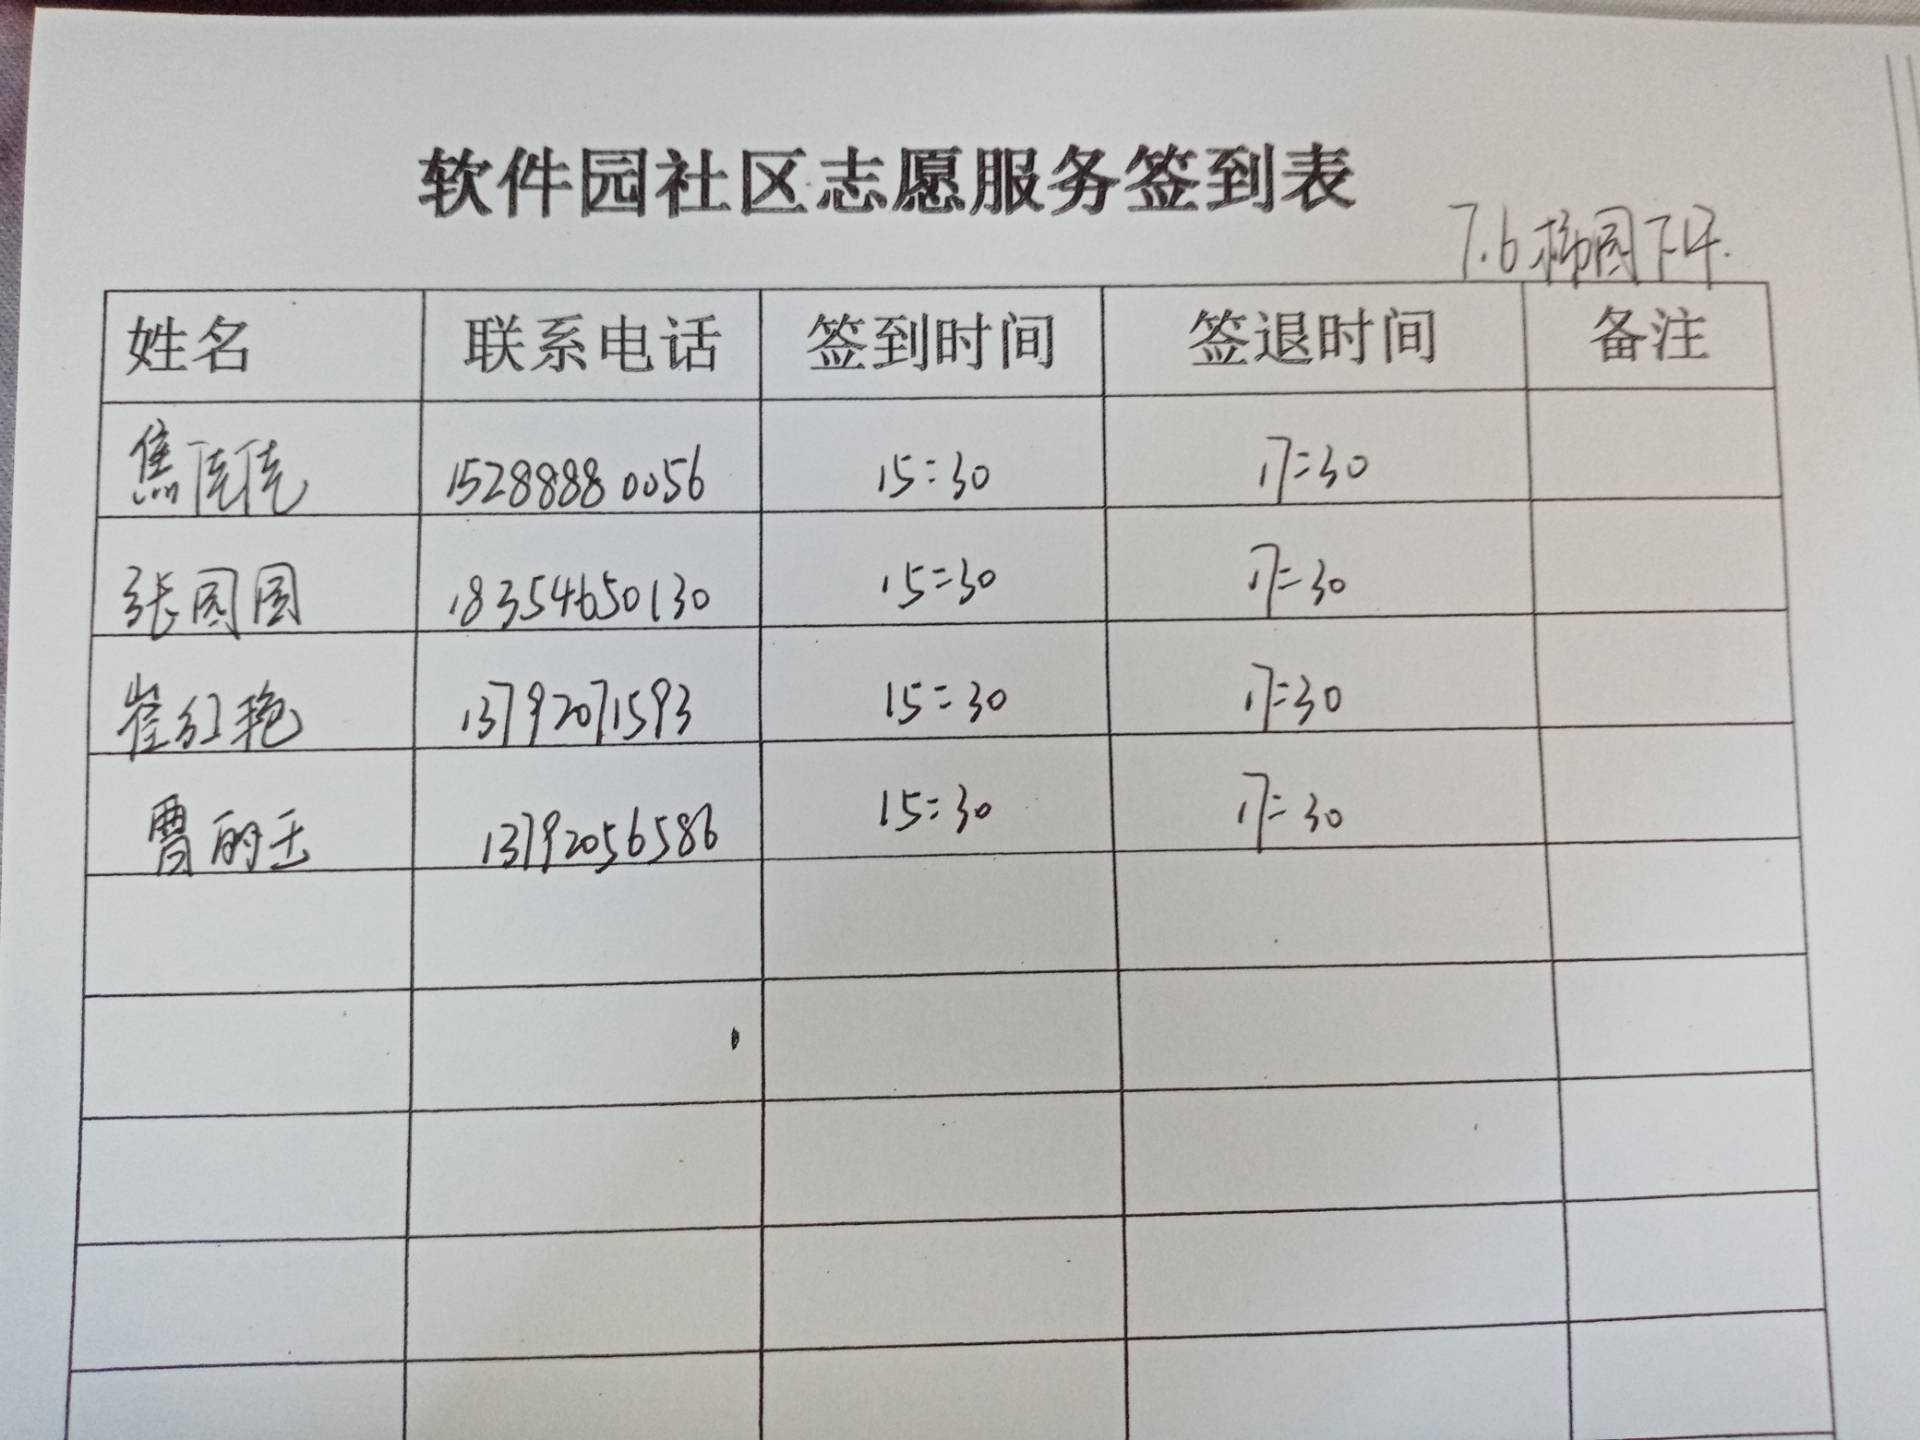 软件园社区志愿服务签到表
7.6 柳园下午.
姓名 联系电话 签到时间 签退时间 备注
焦佳佳 15288880056 15:30 17:30
张园园 18354650130 15:30 17:30
崔红艳 13792071593 15:30 17:30
曹 13792056586 15:30 17:30